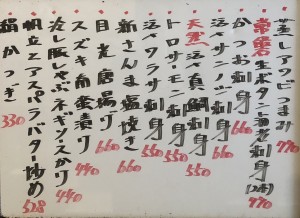 蒸しアワビつまみ 770
常磐生ボタン海老刺身(2本) 770
かつお刺身 660
活〆サンノジ刺身
天然活〆真鯛刺身 550
トロサーモン刺身 550
活〆ワラサ刺身 550
新さんま塩焼き 660
目光唐揚げ 660
スズキ南蛮漬け 440
冷し豚しゃぶネギソースがけ 440
帆立とアスパラバター炒め 528
絹かつぎ 330